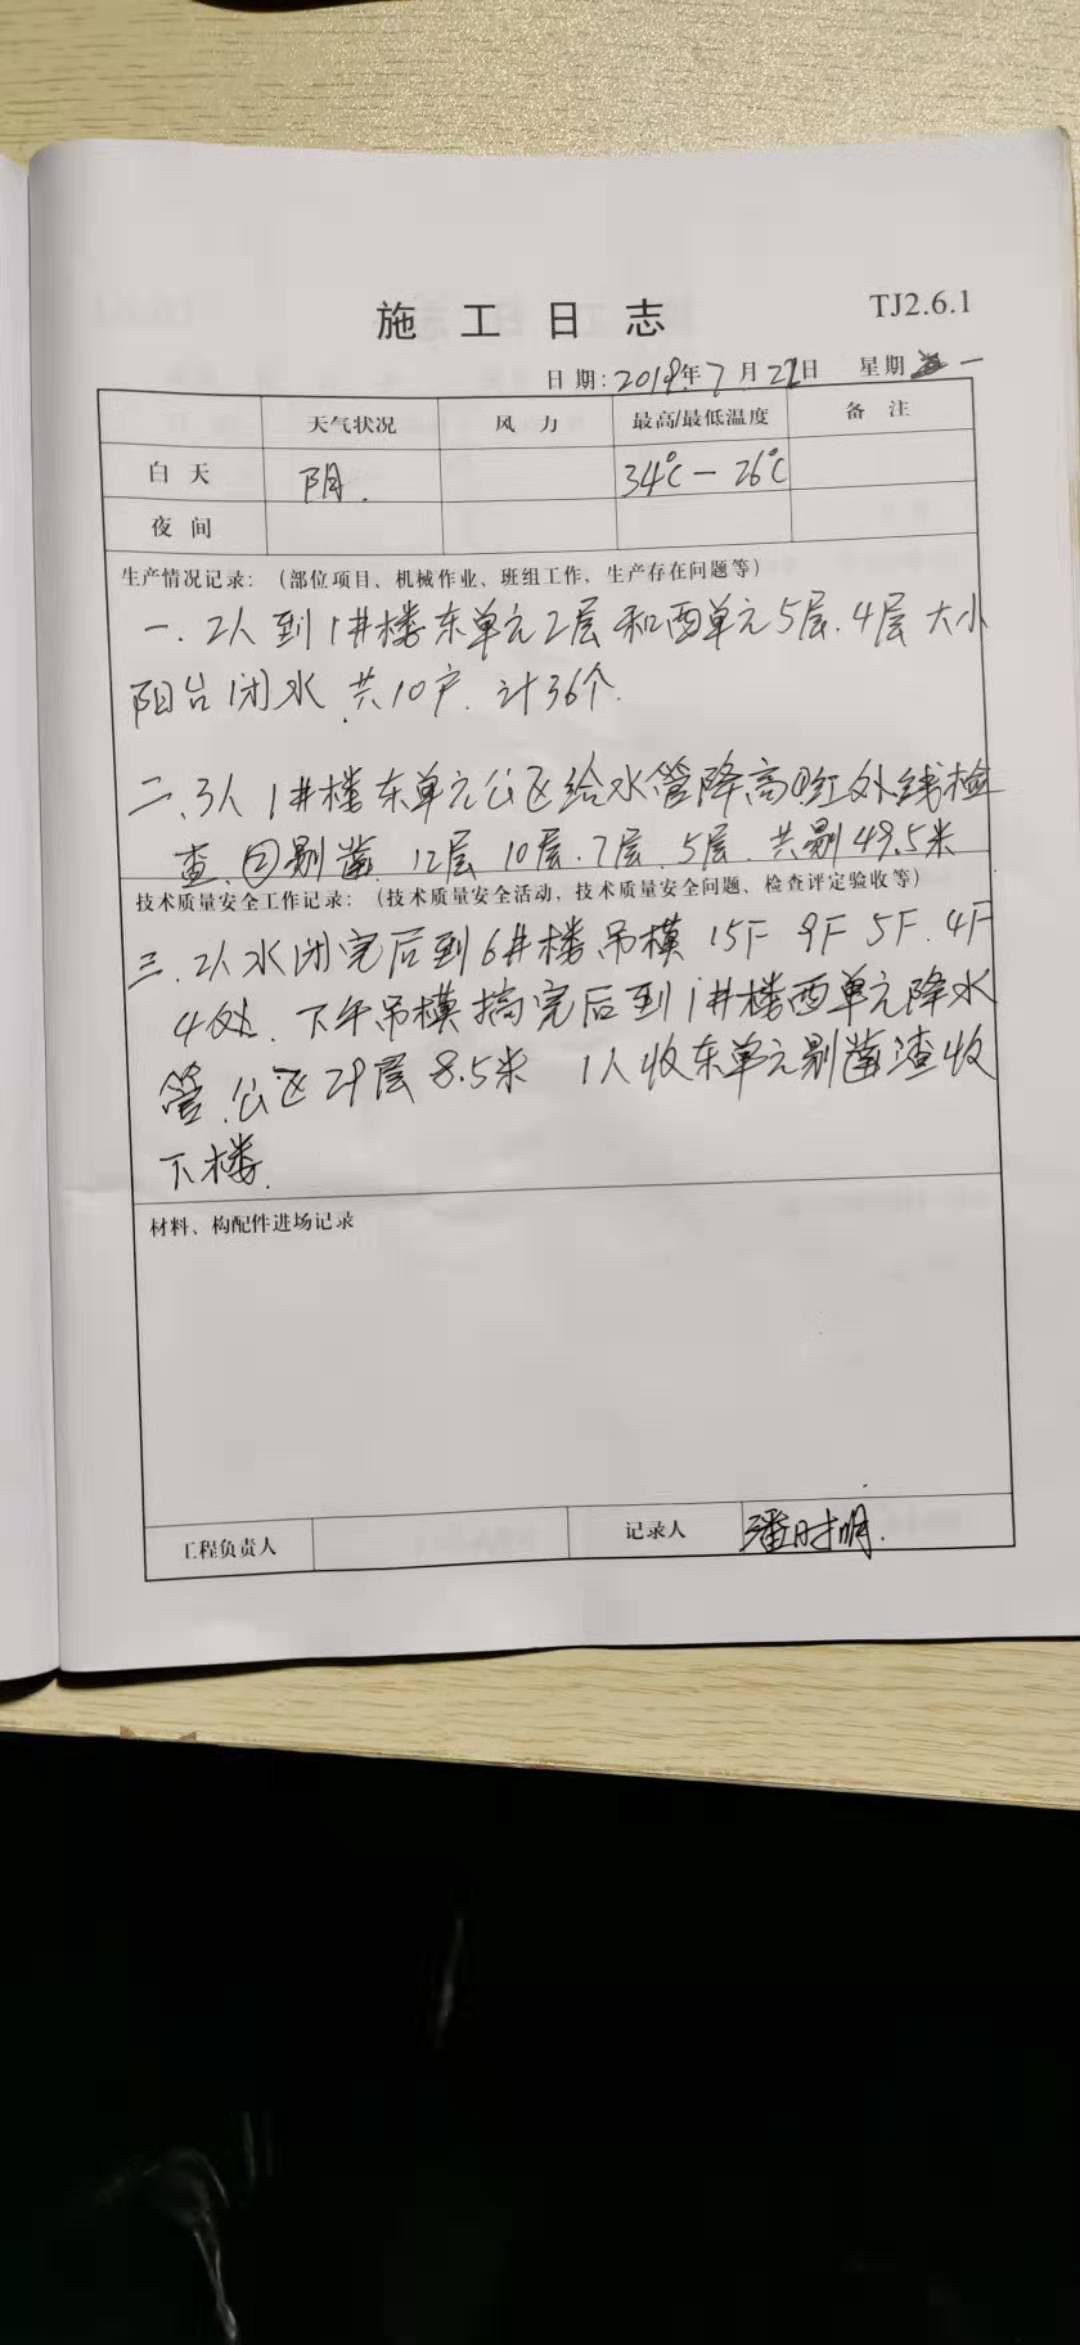 施工日志
TJ2.6.1
日期:2019年7月22日 星期一
天气状况 风力 最高/最低温度 备注
白天 阴. 34℃-26℃
夜间
生产情况记录:(部位项目、机械作业、班组工作,生产存在问题等)
一.2人到1井楼东单元2层和西单元5层.4层大小
阳台闭水.共10户.计36个.
二、3人1井楼东单元公区给水管降高①红外线检
查.②剔凿.12层10层.7层.5层.共剔49.5米
技术质量安全工作记录:(技术质量安全活动,技术质量安全问题、检查评定验收等)
三.2人水闭完后到6井楼吊模15F 9F 5F.4F
4处.下午吊模搞完后到1井楼西单元降水
管.公区29层8.5米 1人收东单元剔凿渣收
下楼.
材料、构配件进场记录
工程负责人 记录人 潘时明.